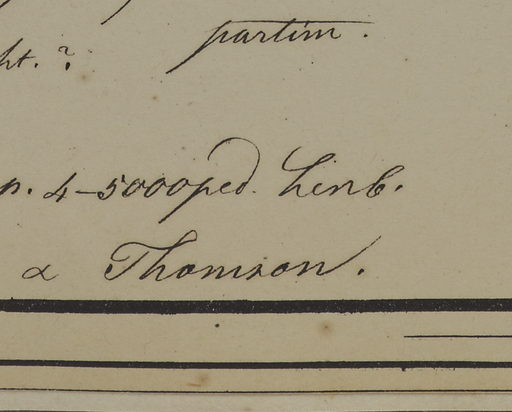 partim.
ht.?
p. 4-5000 ped. herb.
& Thomson.